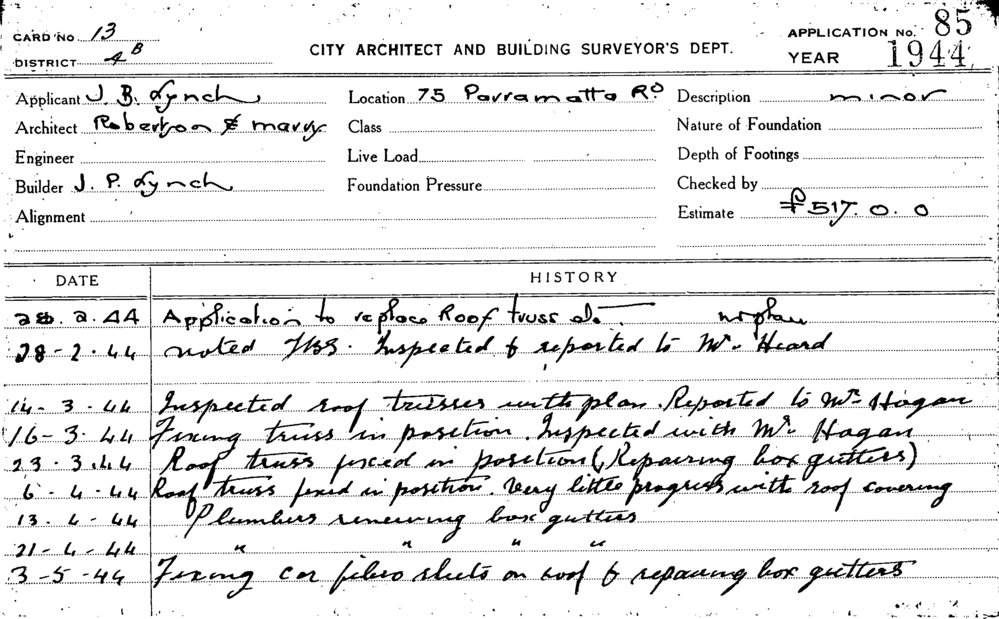 CARD No 13
DISTRICT 4B
CITY ARCHITECT AND BUILDING SURVEYOR'S DEPT.
APPLICATION No. 85
YEAR 1944
Applicant J. B. Lynch
Location 75 Parramatta Rd
Description minor
Architect Robertson &
Class
Nature of Foundation
Engineer
Live Load
Depth of Footings
Builder J. P. Lynch
Foundation Pressure
Checked by
Alignment
Estimate £517. 0. 0
DATE HISTORY
28. 2. 44 Application to replace Roof truss no plan
28-2-44 noted Inspected & reported to Mr. Heard
14-3-44 Inspected roof trusses with plan. Reported to Mr. Hogan
16-3-44 Fixing truss in position. Inspected with Mr. Hogan
23.3.44 Roof truss fixed in position (Repairing box gutters)
6-4-44 Roof truss fixed in position. Very little progress with roof covering
13.4-44 Plumbers renewing box gutters
21-4-44 " " " "
3-5-44 Fixing cor fibro sheets on roof & repairing box gutters